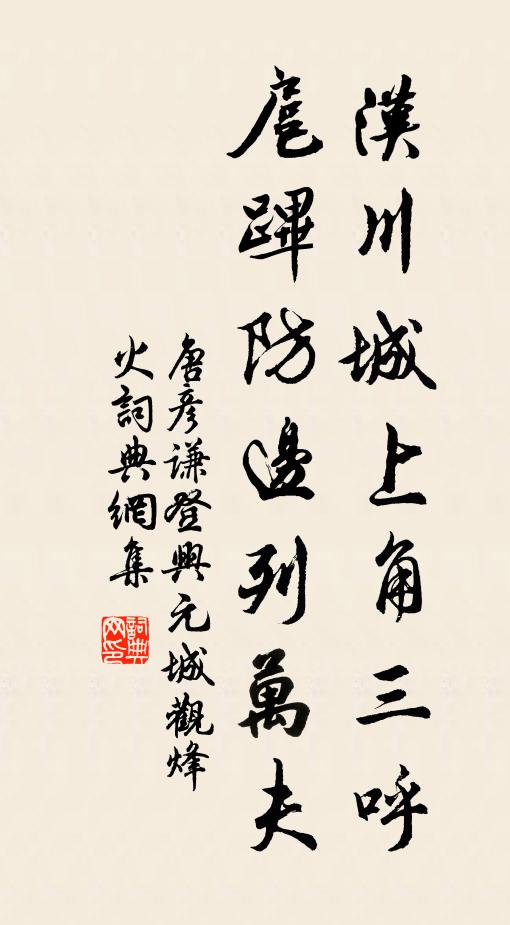 漢川城上角三呼
扈蹕防邊列萬夫
唐彥謙登興元城觀烽
火詞典網集
詞典
网印